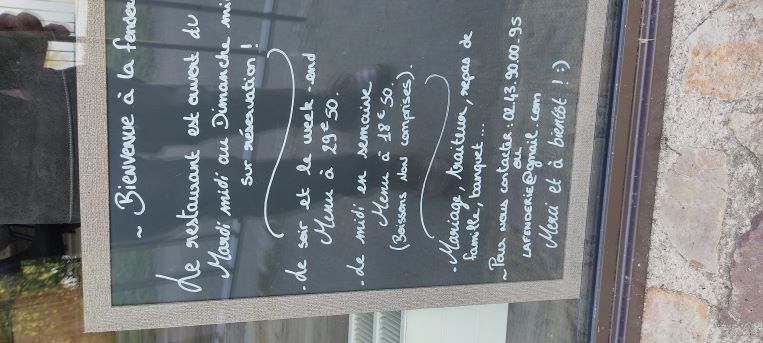 ~ Bienvenue à la
Le restaurant est ouvert du
Mardi midi au Dimanche
sur réservation !
- Le soir et le week-end
Menu à 29€50.
- Le midi en semaine
Menu à 18€50.
(Boissons Non comprises).
- Mariage, traiteur, repas de
famille, banquet...
~ Pour nous contacter : 02.43.90.00.95
ou
LAFENDERIE@gmail.com
Merci et à bientôt ! :)